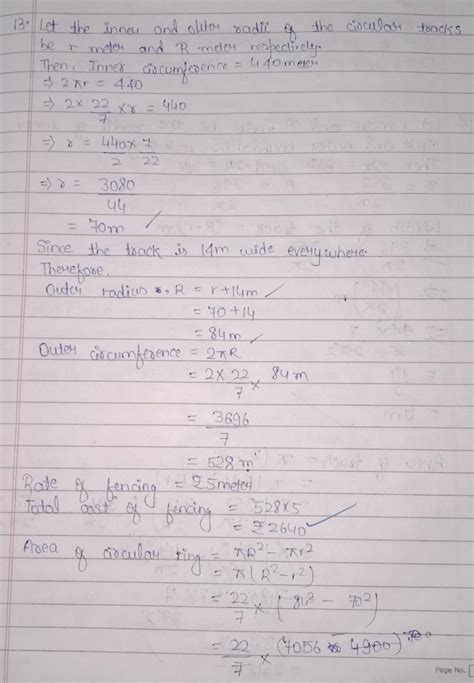 13. Let the inner and outer radii of the circular tracks
be r meter and R meter respectively.
Then, Inner circumference = 440 meter
⇒ 2πr = 440
⇒ 2 × 22/7 × r = 440
⇒ r = 440 × 7 / 2 22
⇒ r = 3080/44
= 70m
Since the track is 14m wide everywhere.
Therefore,
Outer radius R = r + 14m
= 70 + 14
= 84m
Outer circumference = 2πR
= 2 × 22/7 × 84m
= 3696/7
= 528m
Rate of fencing = ₹5 meter
Total cost of fencing = 528×5
= ₹2640
Area of circular ring = πR² - πr²
= π(R² - r²)
= 22/7 × (84² - 70²)
= 22/7 × (7056 4900)
Page No.